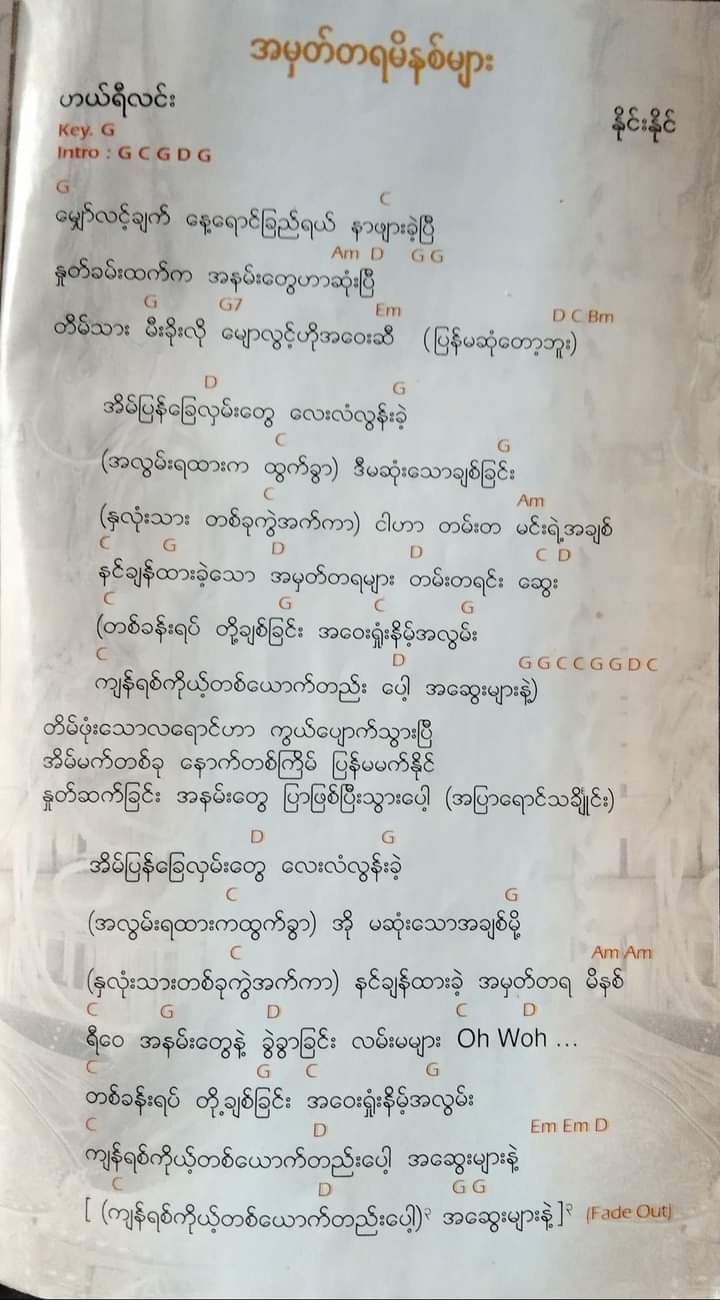 အမှတ်တရမိနစ်များ
ဟယ်ရီလင်း
နိုင်းနိုင်
Key. G
Intro : G C G D G
G C
မျှော်လင့်ချက် နေ့ရောင်ခြည်ရယ် နာဖျားခဲ့ပြီ
Am D G G
နှုတ်ခမ်းထက်က အနမ်းတွေဟာဆုံးပြီ
G G7 Em D C Bm
တိမ်သား မီးခိုးလို မျောလွင့်ဟိုအဝေးဆီ (ပြန်မဆုံတော့ဘူး)
D G
အိမ်ပြန်ခြေလှမ်းတွေ လေးလံလွန်းခဲ့
C G
(အလွမ်းရထားက ထွက်ခွာ) ဒီမဆုံးသောချစ်ခြင်း
C Am
(နှလုံးသား တစ်ခုကွဲအက်ကာ) ငါဟာ တမ်းတ မင်းရဲ့အချစ်
C G D D C D
နင်ချန်ထားခဲ့သော အမှတ်တရများ တမ်းတရင်း ဆွေး
C G C G
(တစ်ခန်းရပ် တို့ချစ်ခြင်း အဝေးရှုံးနိမ့်အလွမ်း
C D G G C C G G D C
ကျန်ရစ်ကိုယ့်တစ်ယောက်တည်း ပေါ့ အဆွေးများနဲ့)
တိမ်ဖုံးသောလရောင်ဟာ ကွယ်ပျောက်သွားပြီ
အိမ်မက်တစ်ခု နောက်တစ်ကြိမ် ပြန်မမက်နိုင်
နှုတ်ဆက်ခြင်း အနမ်းတွေ ပြာဖြစ်ပြီးသွားပေါ့ (အပြာရောင်သချႋုင်း)
D G
အိမ်ပြန်ခြေလှမ်းတွေ လေးလံလွန်းခဲ့
C G
(အလွမ်းရထားကထွက်ခွာ) အို မဆုံးသောအချစ်မို့
C Am Am
(နှလုံးသားတစ်ခုကွဲအက်ကာ) နင်ချန်ထားခဲ့ အမှတ်တရ မိနစ်
C G D C D
ရီဝေ အနမ်းတွေနဲ့ ခွဲခွာခြင်း လမ်းမများ Oh Woh ...
C G C G
တစ်ခန်းရပ် တို့ချစ်ခြင်း အဝေးရှုံးနိမ့်အလွမ်း
C D Em Em D
ကျန်ရစ်ကိုယ့်တစ်ယောက်တည်းပေါ့ အဆွေးများနဲ့
C D G G
[ (ကျန်ရစ်ကိုယ့်တစ်ယောက်တည်းပေါ့)၃ အဆွေးများနဲ့ ]၃ (Fade Out)